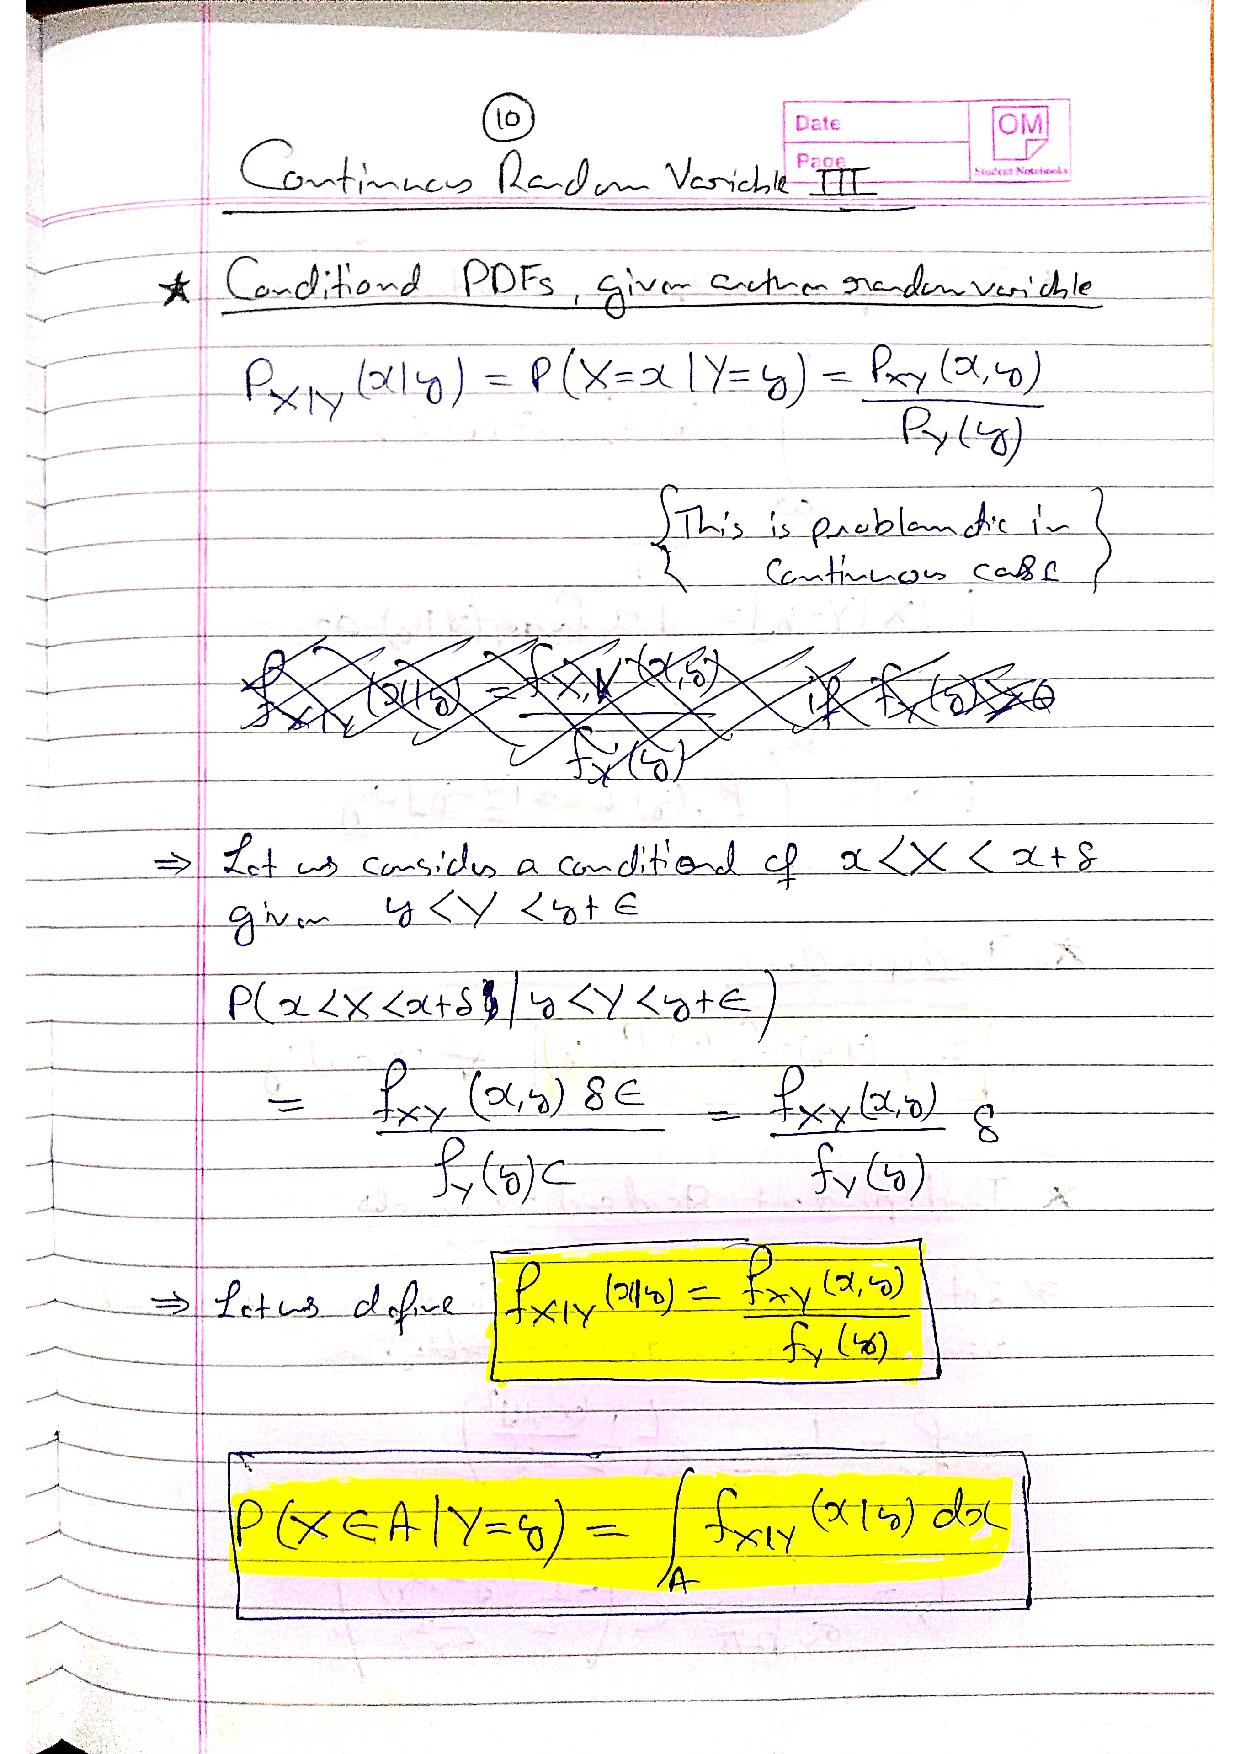 10
Date
OM
Page
Student Notebooks
Continuous Random Variable III
★ Conditional PDFs, given another random variable
P_{X|Y}(x|y) = P(X=x | Y=y) = P_{XY}(x,y) / P_Y(y)
{This is problamatic in
Continuous case}
f_{X|Y}(x|y) = f_{X,Y}(x,y) / f_Y(y) if f_Y(y) > 0
⇒ Let us consider a conditional of x < X < x+δ
given y < Y < y+ε
P(x < X < x+δ | y < Y < y+ε)
= f_{XY}(x,y) δε / f_Y(y) ε = f_{XY}(x,y) / f_Y(y) δ
⇒ Let us define f_{X|Y}(x|y) = f_{XY}(x,y) / f_Y(y)
P(X∈A | Y=y) = ∫_A f_{X|Y}(x|y) dx